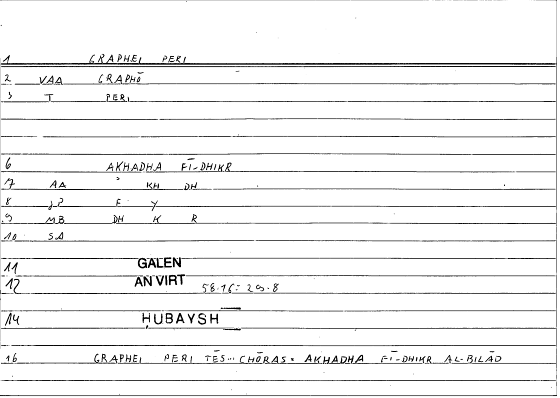 1 GRAPHEI PERI
2 VAA GRAPHŌ
3 T PERI
6 AKHADHA FĪ-DHIKR
7 AA ʾ KH DH
8 F Y
9 MB DH K R
10 SA
11 GALEN
12 AN VIRT 58.16 = 29.8
14 ḤUBAYSH
16 GRAPHEI PERI TĒS... CHŌRAS = AKHADHA FĪ-DHIKR AL-BILĀD